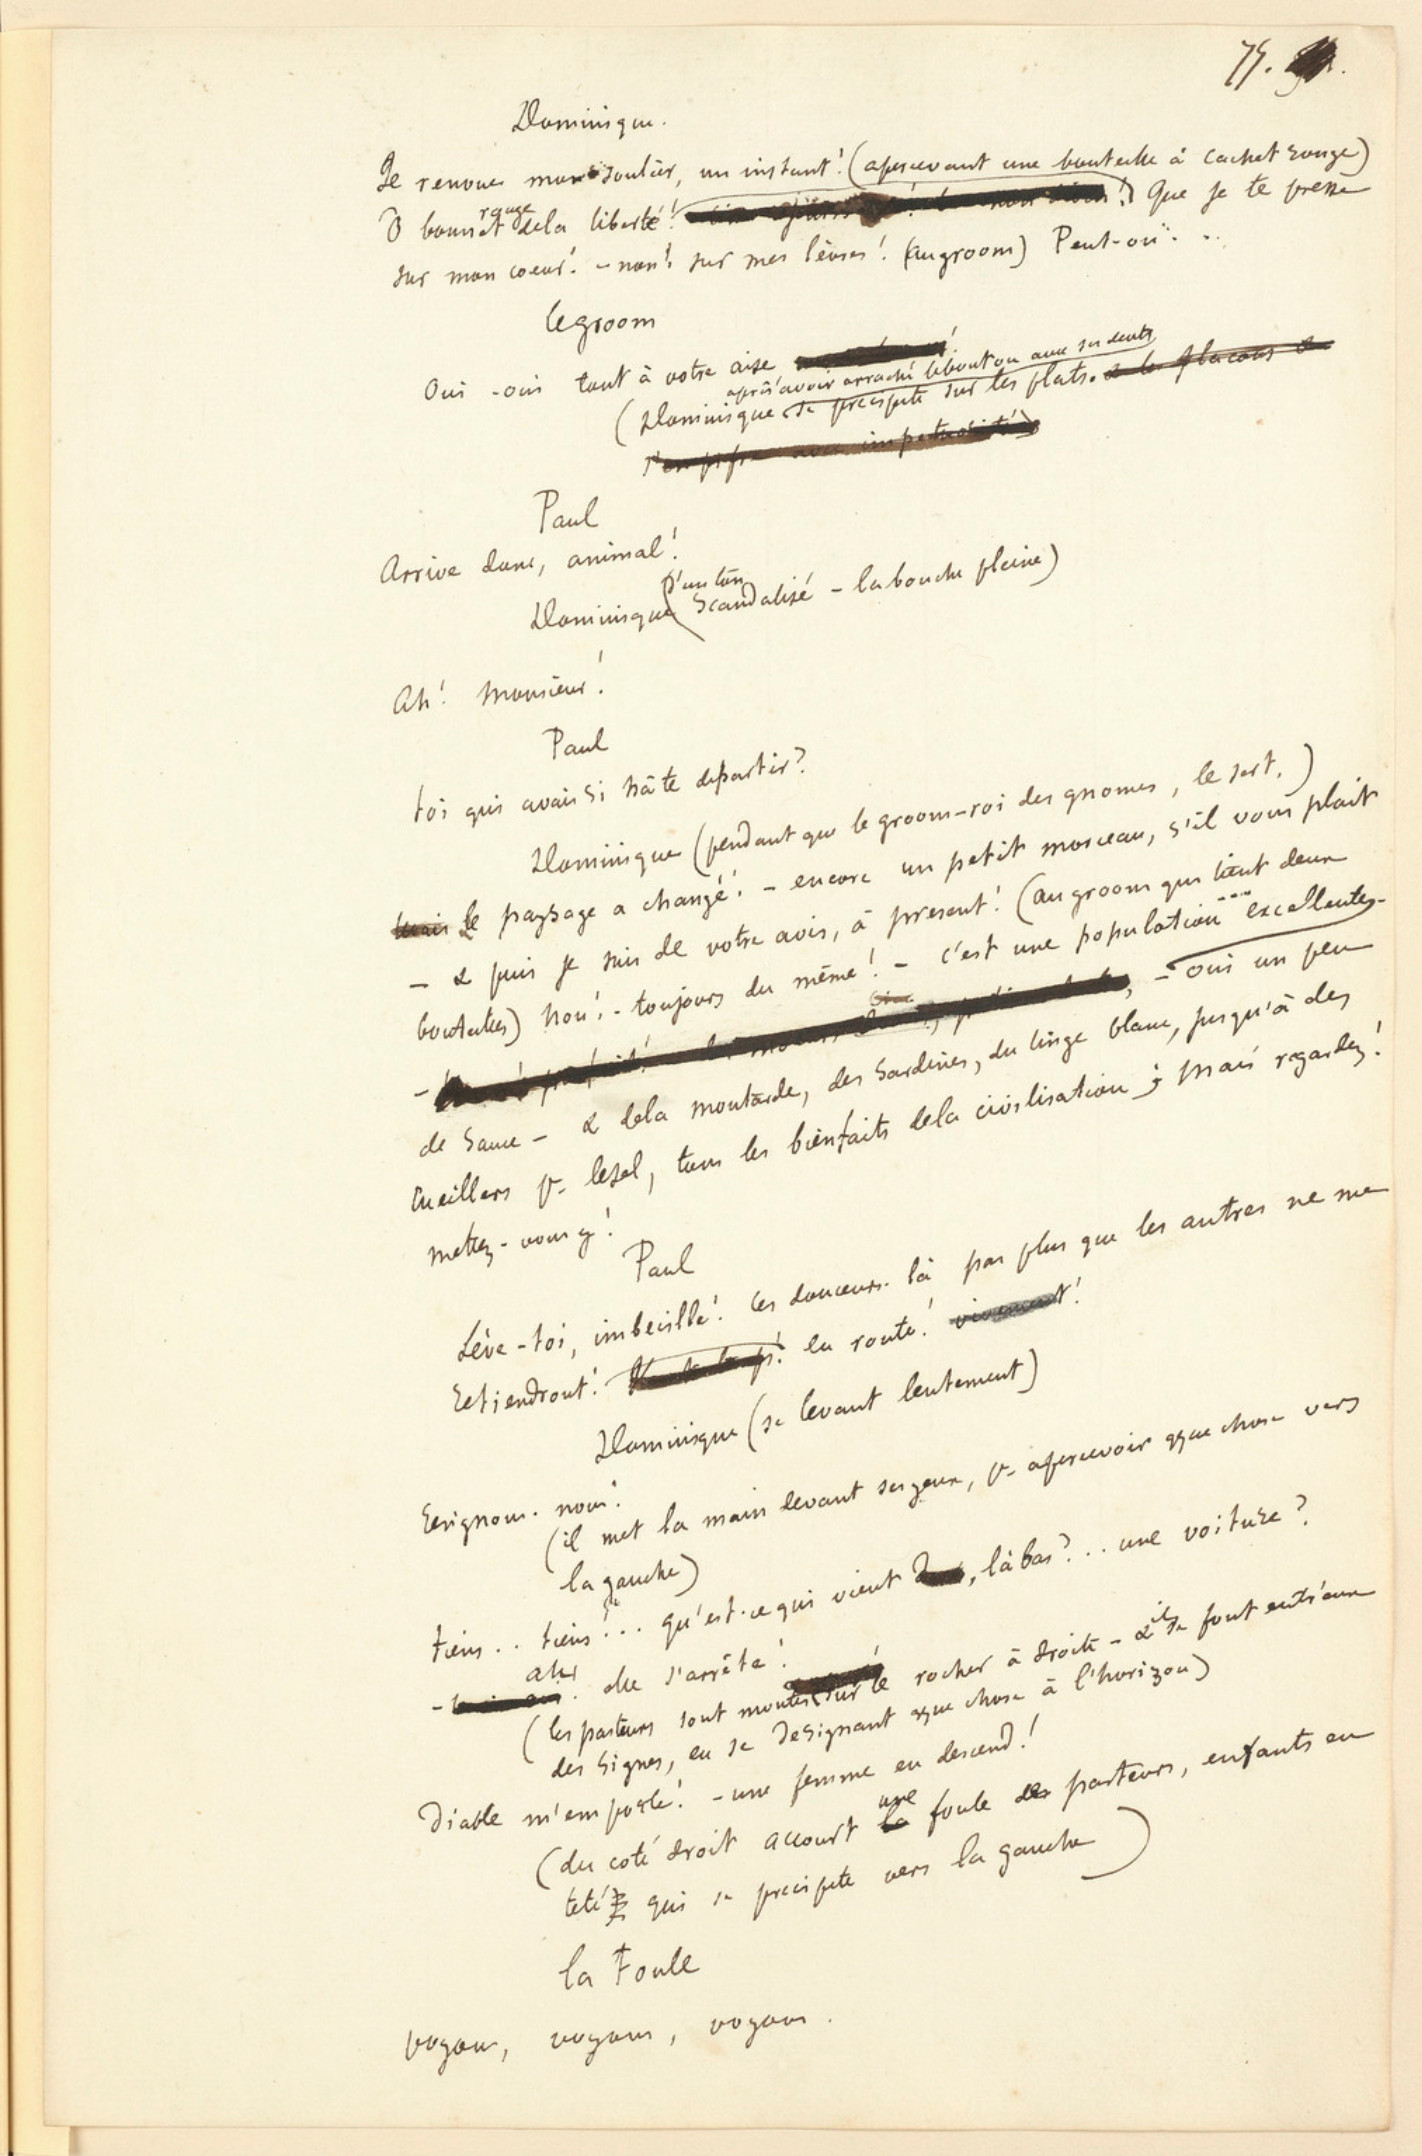 75.
Dominique.
Je renoue mon soulier, un instant! (apercevant une bouteille à cachet rouge)
O bonnet rouge dela liberté! Que je te presse
sur mon coeur! - non! sur mes lèvres! (au groom) Peut-on ...
le groom
Oui - oui tout à votre aise
après avoir arraché le bouton avec ses dents
(Dominique se precipite sur les plats. & les flacons &
s'empiffre avec impetuosité)
Paul
Arrive donc, animal!
Dominique (d'un ton Scandalisé - la bouche pleine)
Ah! monsieur!
Paul
toi qui avais si hâte departir?
Dominique (pendant que le groom-roi des gnomes, le sert.)
mais le paysage a changé! - encore un petit morceau, s'il vous plait
- & puis je suis de votre avis, à present! (au groom qui tient deux
bouteilles) non! - toujours du même! - c'est une population ... excellente -
- oui un peu
de Sauce - & dela moutarde, des Sardines, du linge blanc, jusqu'à des
Cueillers pr. lesel, tous les bienfaits dela civilisation; mais regardez!
mettez-vous y!
Paul
Lève-toi, imbecille! ces douceurs-là pas plus que les autres ne me
retiendront! en route! vivement!
Dominique (se levant lentement)
resignons-nous!
(il met la main devant ses yeux, pr. apercevoir qque chose vers
la gauche)
tiens .. tiens! ... qu'est-ce qui vient, làbas? ... une voiture?
- ah! elle s'arrête!
(les pasteurs sont montés sur le rocher à droite - & ils se font entr'eux
des Signes, en se designant qque chose à l'horizon)
Diable m'emporte! - une femme en descend!
(du coté droit accourt une foule de pasteurs, enfants en
tête qui se precipite vers la gauche)
la Foule
voyons, voyons, voyons.